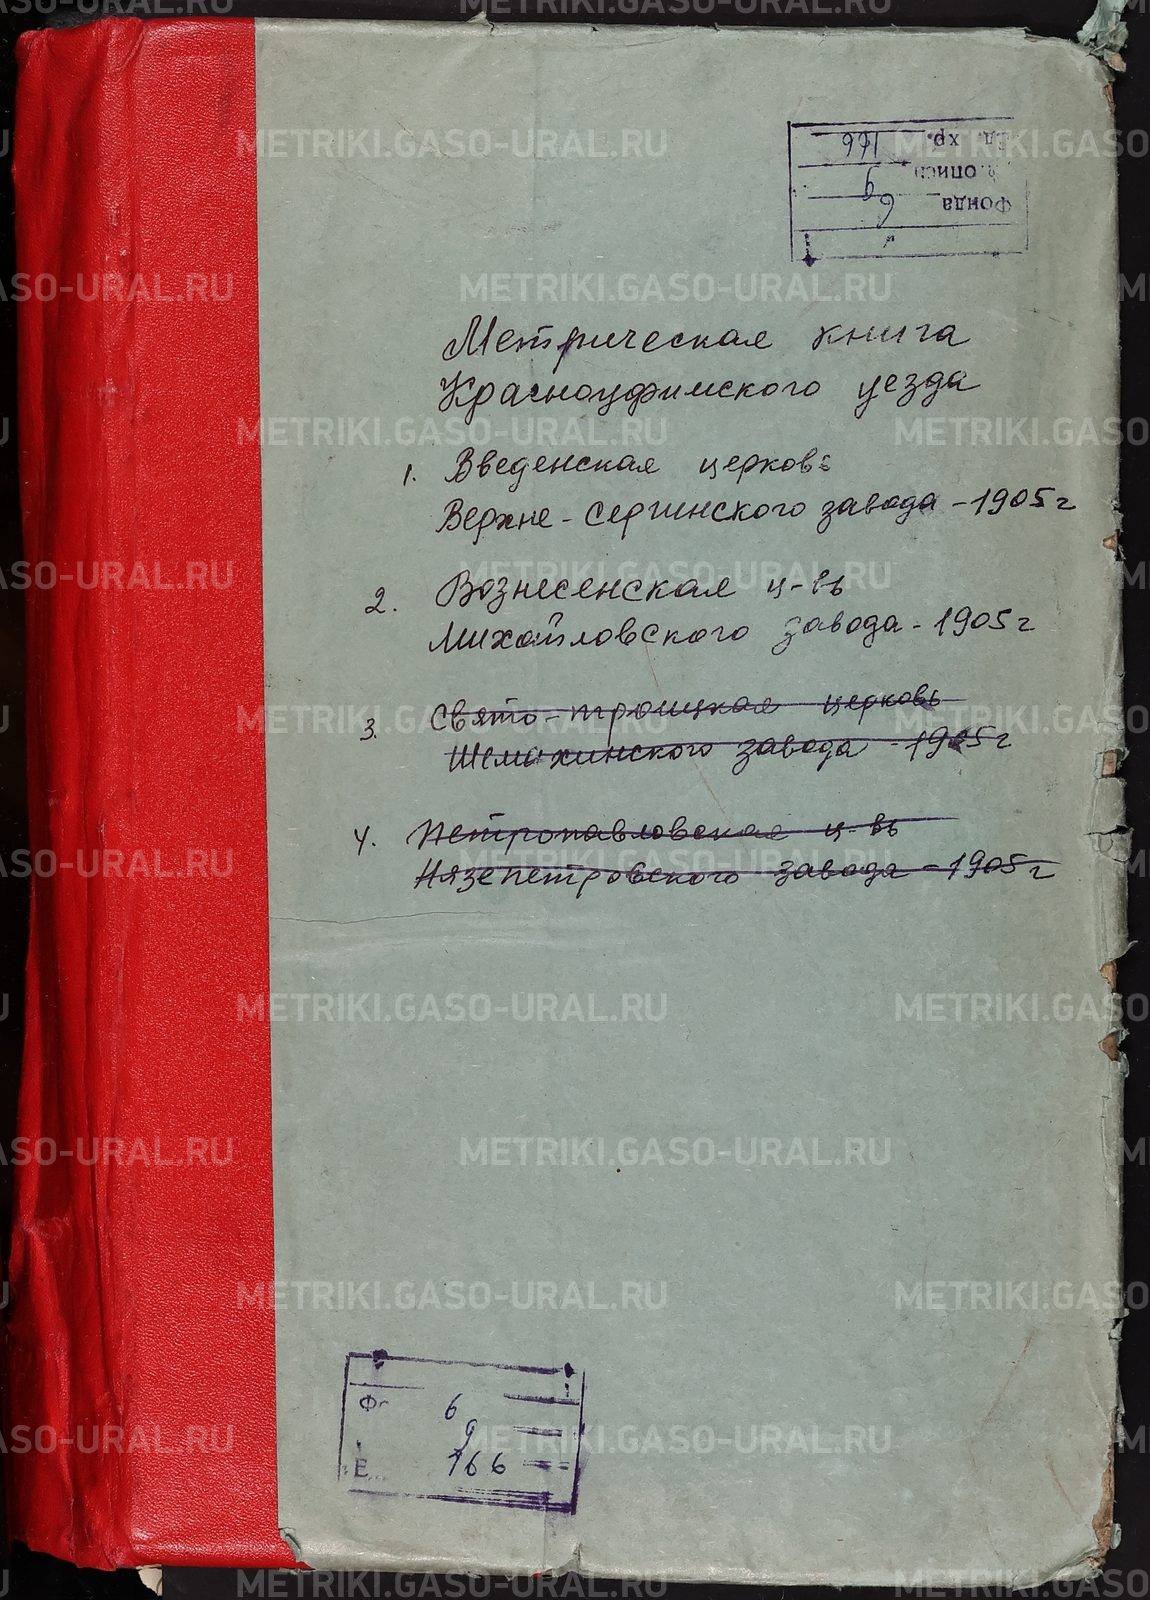 Ед. хр. 166
№ описи 9
Фонда 6
Метрическая книга
Красноуфимского уезда
1. Введенская церковь
Верхне-Сергинского завода - 1905 г
2. Вознесенская ц-вь
Михайловского завода - 1905 г
3. Свято-троицкая церковь
Шемахинского завода - 1905 г
4. Петропавловская ц-вь
Нязепетровского завода - 1905 г
Ф 6
9
Е 166
METRIKI.GASO-URAL.RU